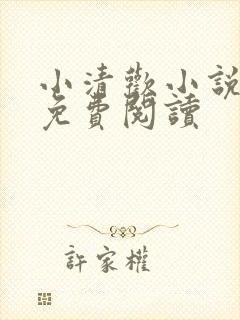 小清歡小說
免費閱讀
許家權